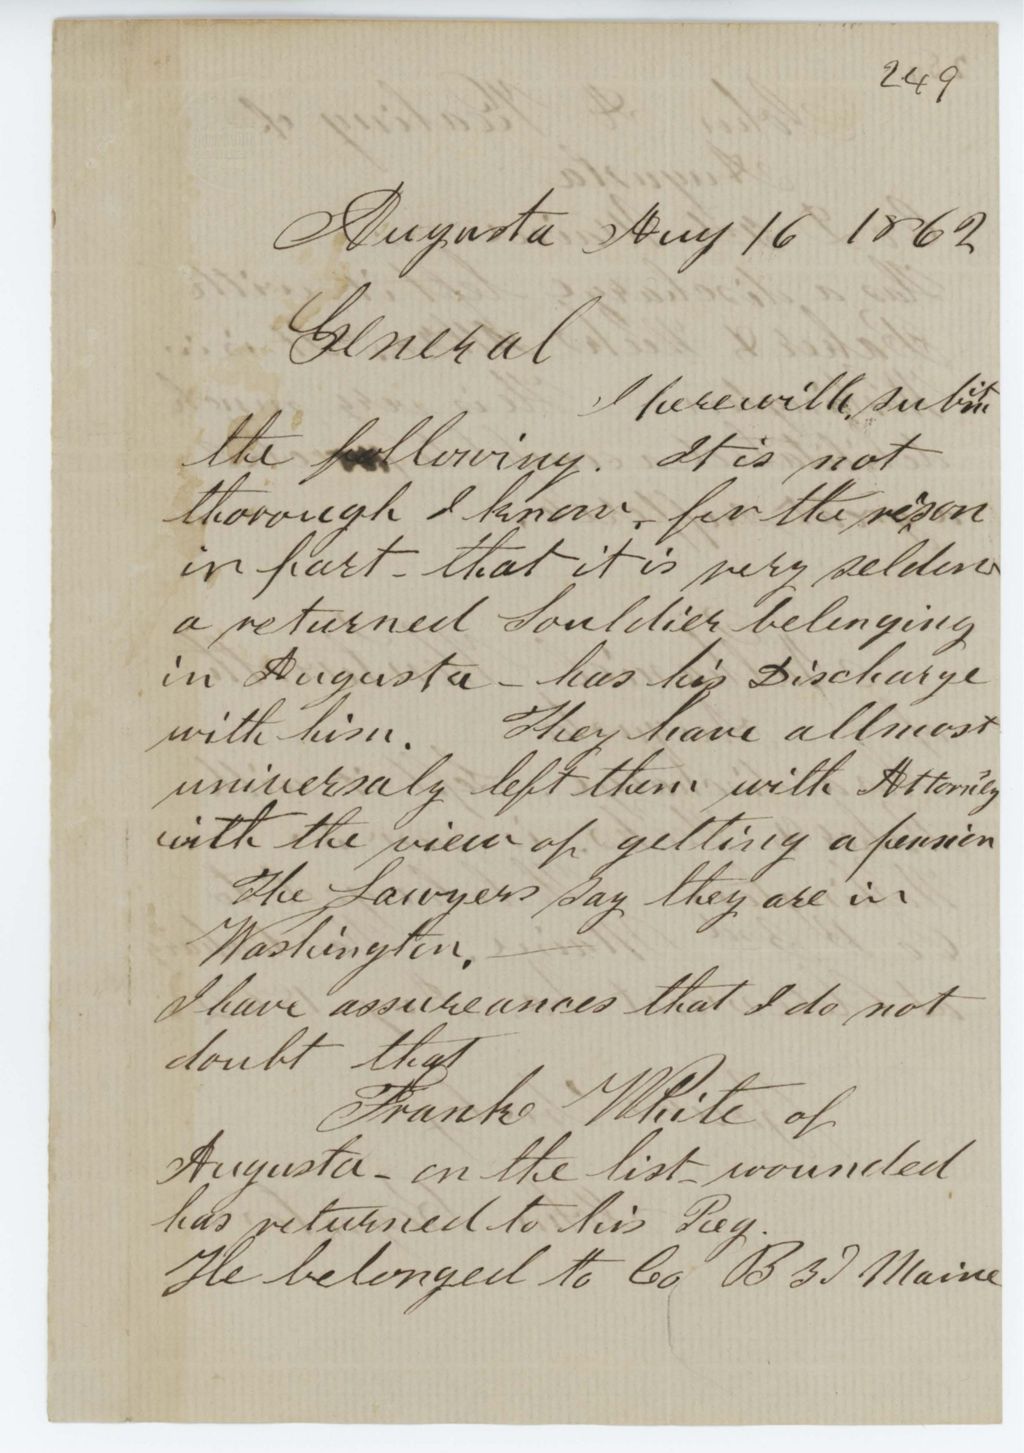 249
Augusta Aug 16 1862
General
I herewith submit
the following. It is not
thorough I know, for the reason
in part - that it is very seldom
a returned Souldier belonging
in Augusta - has his Discharge
with him. They have allmost
universaly left them with Attorney
with the view of getting a pension
The Lawyers say they are in
Washington. —
I have assureances that I do not
doubt that
Frank White of
Augusta - on the list - wounded
has returned to his Reg.
He belonged to Co B 3d Maine